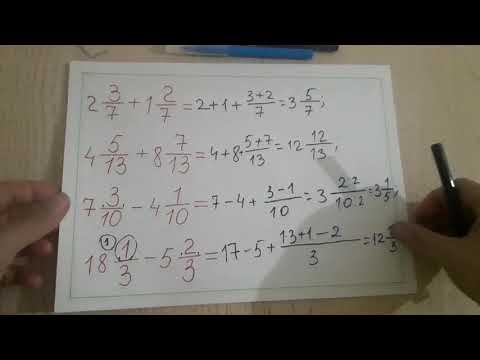 2 3/7 + 1 2/7 = 2+1+ (3+2)/7 = 3 5/7;
4 5/13 + 8 7/13 = 4+8+ (5+7)/13 = 12 12/13;
7 3/10 − 4 1/10 = 7−4+ (3−1)/10 = 3 (2:2)/(10:2) = 3 1/5;
18 (1) 1/3 − 5 2/3 = 17−5+ (1.3+1−2)/3 = 12 /3